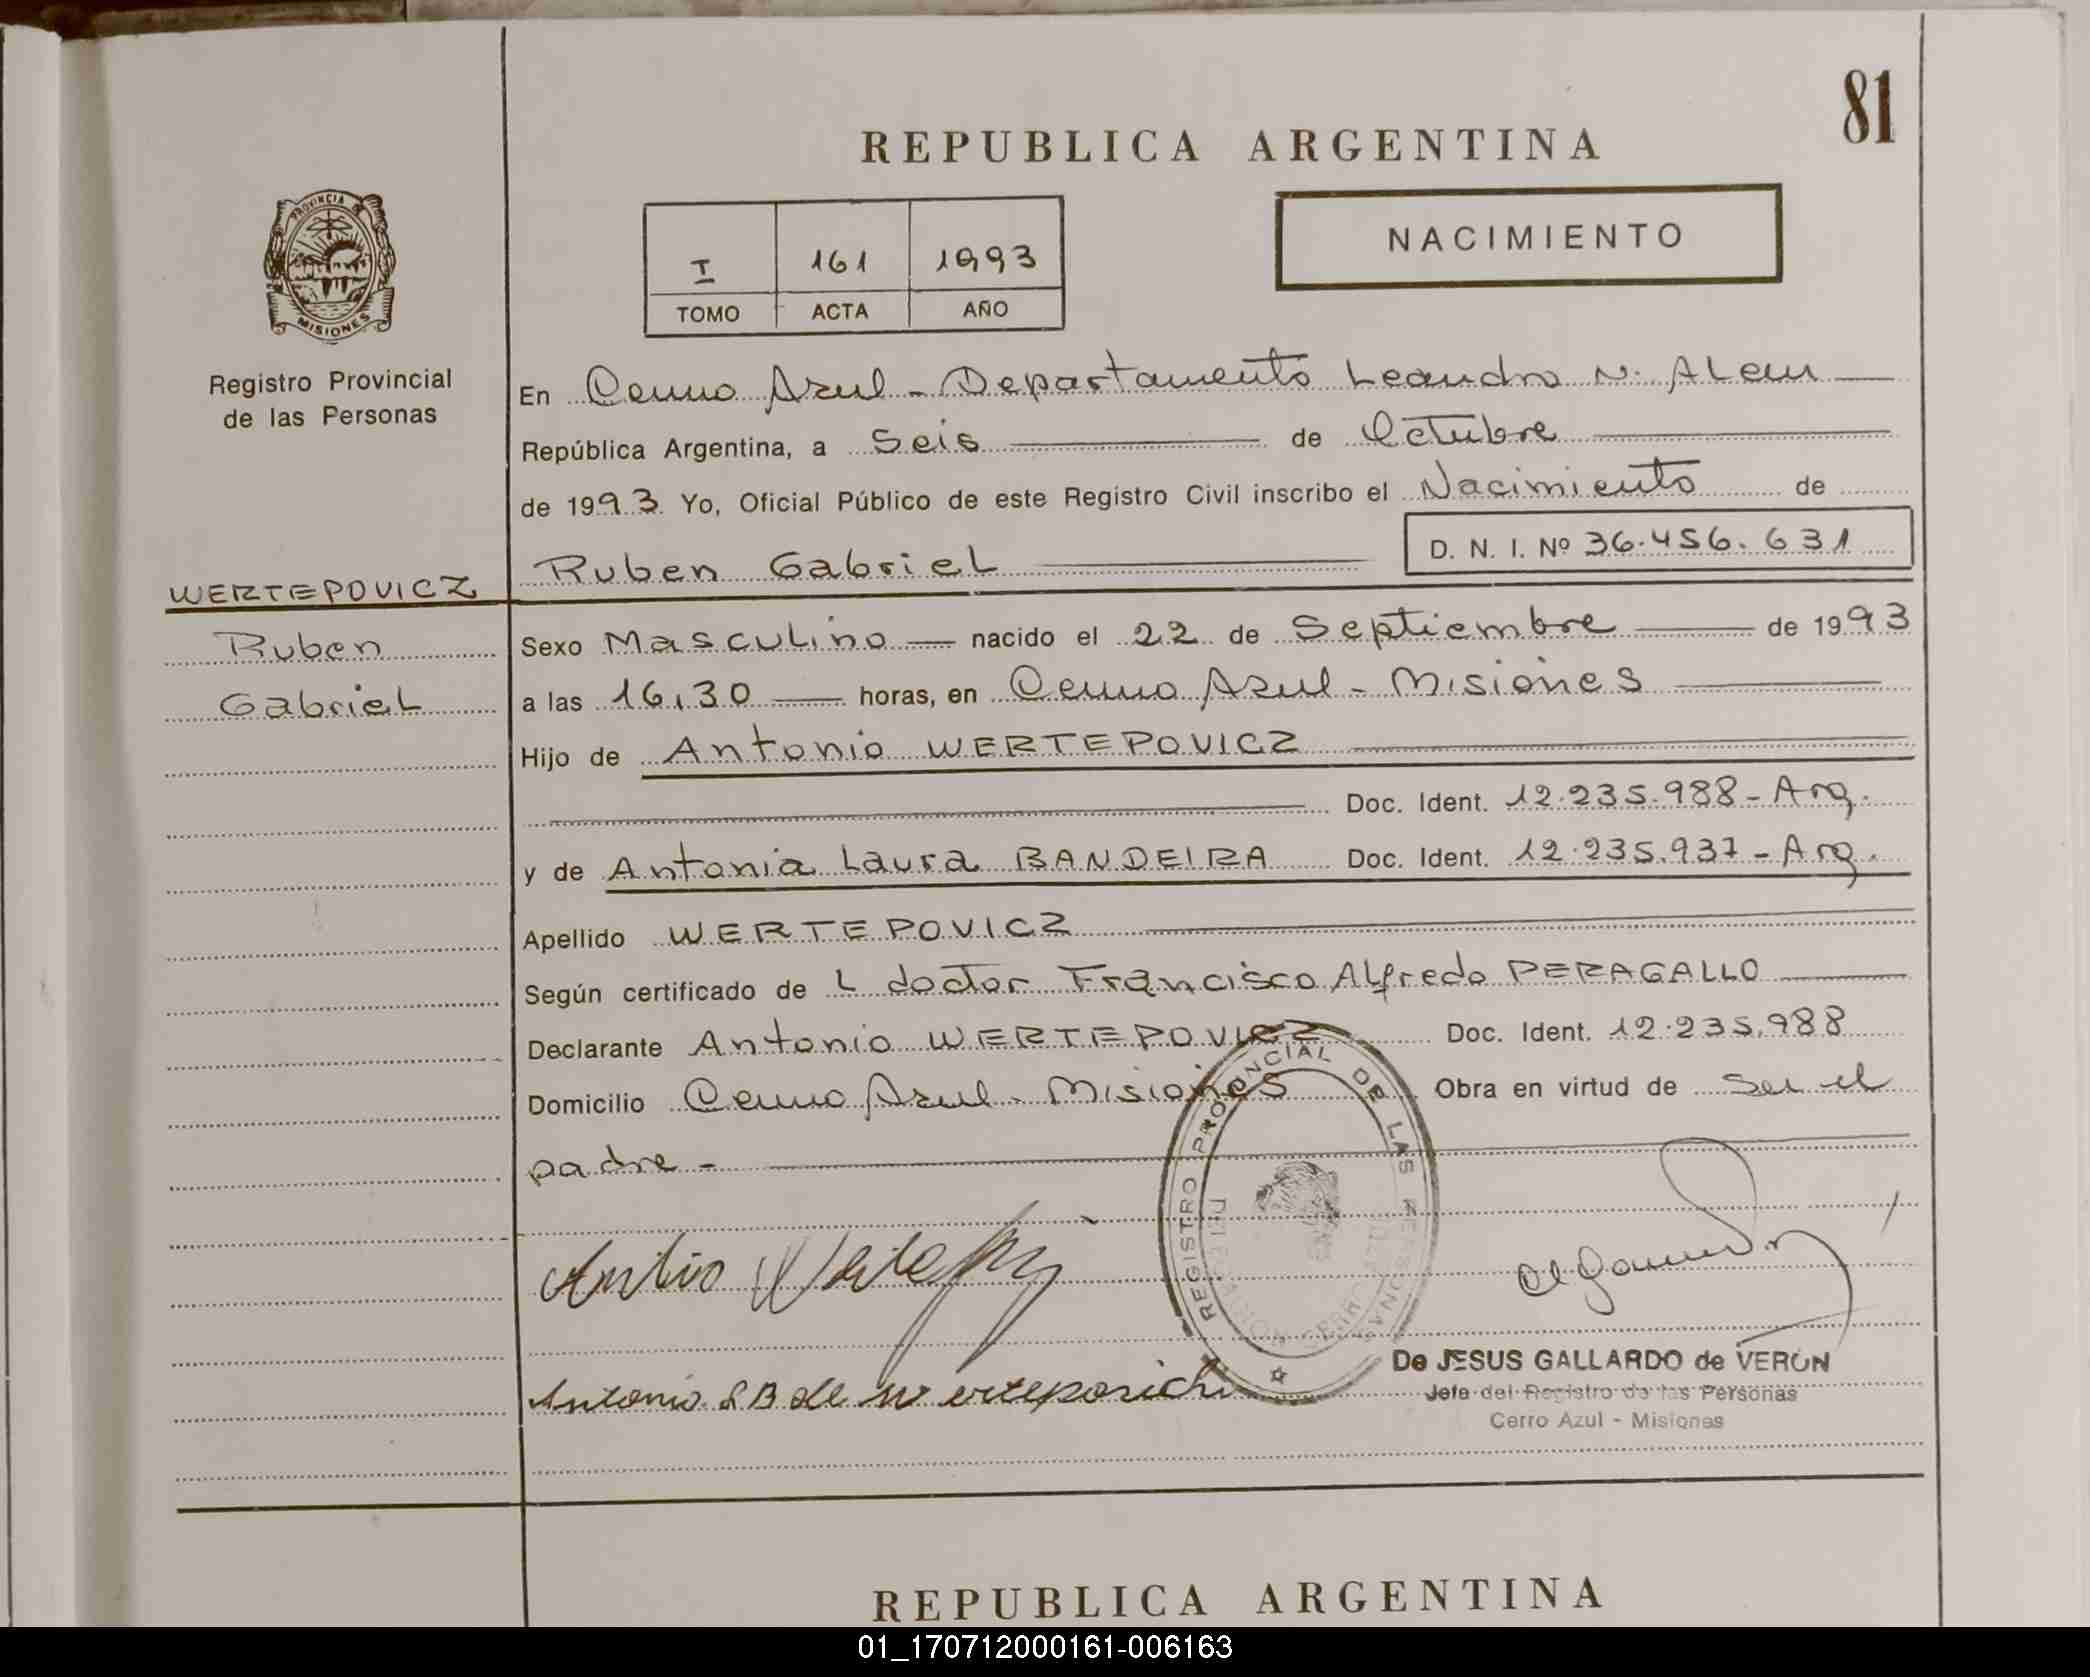 81
REPUBLICA ARGENTINA
PROVINCIA DE
MISIONES
Registro Provincial
de las Personas
I 161 1993
TOMO ACTA AÑO
NACIMIENTO
En Cerro Azul - Departamento Leandro N. Alem
República Argentina, a Seis de Octubre
de 1993 Yo, Oficial Público de este Registro Civil inscribo el Nacimiento de
Ruben Gabriel D. N. I. Nº 36.456.631
WERTEPOVICZ
Ruben
Gabriel
Sexo Masculino nacido el 22 de Septiembre de 1993
a las 16,30 horas, en Cerro Azul - Misiones
Hijo de Antonio WERTEPOVICZ
Doc. Ident. 12.235.988 - Arg.
y de Antonia Laura BANDEIRA Doc. Ident. 12.235.937 - Arg.
Apellido WERTEPOVICZ
Según certificado de L doctor Francisco Alfredo PERAGALLO
Declarante Antonio WERTEPOVICZ Doc. Ident. 12.235.988
Domicilio Cerro Azul - Misiones Obra en virtud de ser el
padre -
REGISTRO PROVINCIAL DE LAS PERSONAS
Antonio
Antonia L B de Wertepovich
De JESUS GALLARDO de VERÓN
Jefe del Registro de las Personas
Cerro Azul - Misiones
REPUBLICA ARGENTINA
01_170712000161-006163